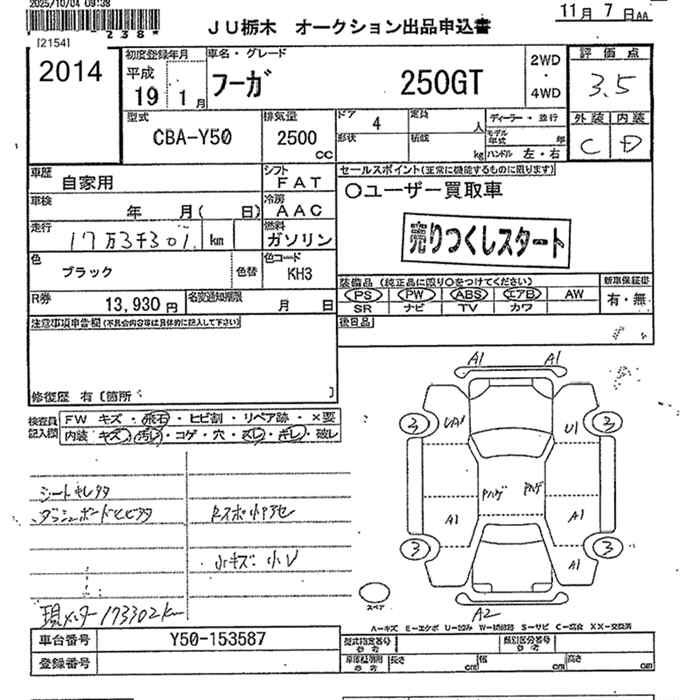 2025/10/04 09:38
[2154]
* 238 *
JU栃木 オークション出品申込書
11月 7日 AA
2014
初度登録年月
平成
19 1月
車名・グレード
フーガ 250GT
2WD
・
4WD
評価点
3.5
外装 内装
C D
型式
CBA-Y50
排気量
2500
cc
ドア
4
定員
人
形状
積載
kg
ディーラー・並行
モデル年式 年
ハンドル 左・右
車歴
自家用
シフト
FAT
車検
年 月( 日)
冷房
AAC
走行
17万3千301 km
燃料
ガソリン
色
ブラック
色替
色コード
KH3
セールスポイント(正常に機能するものに限ります)
○ユーザー買取車
売りつくしスタート
装備品 (純正品に限り○をつけてください)
PS PW ABS エアB AW
SR ナビ TV カワ
新車保証書
有・無
後日品
R券
13,930 円
名変通知期限
月 日
注意事項申告欄(不具合内容等は具体的に記入して下さい)
修復歴 有 [箇所 ]
検査員記入欄
FW キズ・飛石・ヒビ割・リペア跡・×要
内装 キズ・汚レ・コゲ・穴・スレ・ギレ・破レ
シートキレタ
現メーター173302km
小キズ:小V
A1 A1
3 UA1 U1 3
Pハゲ Pハゲ
A1 A1
3 A1 3
スペア
A2
A-キズ E-エクボ U-凹み W-補修跡 S-サビ C-腐食 XX-交換済
車台番号 Y50-153587
登録番号
型式指定番号 参考
類別区分番号 参考
長さ cm 幅 cm 高さ cm